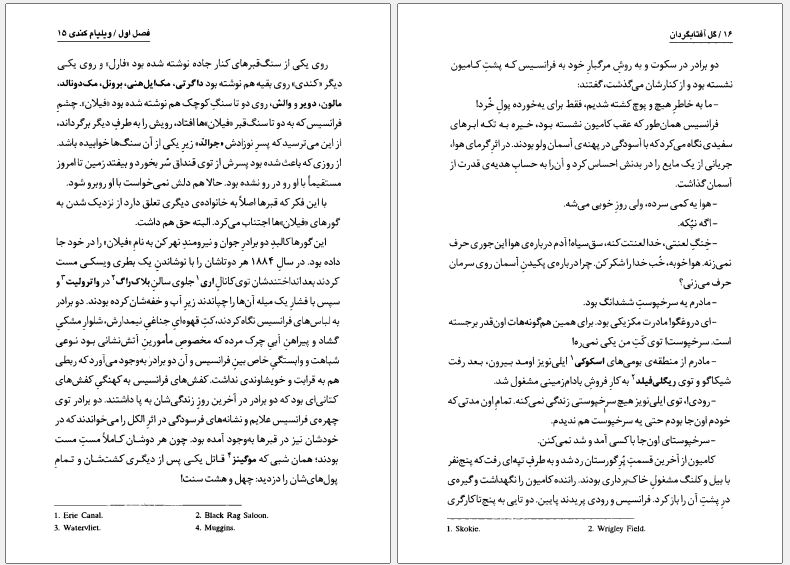 فصل اول / ویلیام کندی ۱۵
روی یکی از سنگ‌قبرهای کنار جاده نوشته شده بود «فارل» و روی یکی
دیگر «کندی» روی بقیه هم نوشته بود داگرتی، مک‌ایل‌هنی، برونل، مک‌دونالد،
مالون، دویر و والش، روی دو تا سنگِ کوچک هم نوشته شده بود «فیلان». چشمِ
فرانسیس که به دو تا سنگ‌قبر «فیلان»ها افتاد، رویش را به طرفِ دیگر برگرداند،
از این می‌ترسید که پسرِ نوزادش «جرالد» زیرِ یکی از آن سنگ‌ها خوابیده باشد.
از روزی که باعث شده بود پسرش از توی قنداق سُر بخورد و بیفتد زمین تا امروز
مستقیماً با او رو در رو نشده بود. حالا هم دلش نمی‌خواست با او روبرو شود.
با این فکر که قبرها اصلاً به خانواده‌ی دیگری تعلق دارد از نزدیک شدن به
گورهای «فیلان»ها اجتناب می‌کرد. البته حق هم داشت.
این گورها کالبدِ دو برادرِ جوان و نیرومندِ نهر کن به نامِ «فیلان» را در خود جا
داده بود. در سالِ ۱۸۸۴ هر دوتاشان را با نوشاندنِ یک بطری ویسکی مست
کردند بعد انداختندشان توی کانالِ اری۱ جلوی سالنِ بلاک‌راگ۲ در واترولیت۳ و
سپس با فشارِ یک میله آن‌ها را چپاندند زیرِ آب و خفه‌شان کرده بودند. دو برادر
به لباس‌های فرانسیس نگاه کردند، کتِ قهوه‌ایِ جناغیِ نیمدارش، شلوارِ مشکیِ
گشاد و پیراهنِ آبیِ چرک مرده که مخصوصِ مأمورینِ آتش‌نشانی بود نوعی
شباهت و وابستگیِ خاص بینِ فرانسیس و آن دو برادر به‌وجود می‌آورد که ربطی
هم به قرابت و خویشاوندی نداشت. کفش‌های فرانسیس به کهنگیِ کفش‌های
کتانی‌ای بود که دو برادر در آخرین روزِ زندگی‌شان به پا داشتند. دو برادر توی
چهره‌ی فرانسیس علایم و نشانه‌های فرسودگی در اثرِ الکل را می‌خواندند که در
خودشان نیز در قبرها به‌وجود آمده بود. چون هر دوشان کـاملاً مستِ مست
بودند؛ همان شبی که موگینز۴ قـاتل یکـی پس از دیگـری کشت‌شـان و تـمامِ
پول‌های‌شان را دزدید: چهل و هشت سنت!
1. Erie Canal. 2. Black Rag Saloon.
3. Watervliet. 4. Muggins.
۱۶ / گل آفتابگردان
دو برادر در سکوت و به روشِ مرگبارِ خود به فرانسیس کـه پشتِ کـامیون
نشسته بود و از کنارشان می‌گذشت، گفتند:
- ما به خاطرِ هیچ و پوچ کشته شدیم، فقط برای یه‌خورده پولِ خُرد!
فرانسیس همان‌طور که عقبِ کامیون نشسته بـود، خـیره بـه تکـه ابـرهای
سفیدی نگاه می‌کرد که با آسودگی در پهنه‌ی آسمان ولو بودند. در اثرِ گرمای هوا،
جریانی از یک مایع را در بدنش احساس کرد و آن‌را به حسابِ هدیه‌ی قدرت از
آسمان گذاشت.
- هوا یه کمی سرده، ولی روزِ خوبی می‌شه.
- اگه نپُکه.
- خِنگِ لعنتی، خدا لعنتت کنه، سق‌سیاه! آدم درباره‌ی هوا این‌جوری حرف
نمی‌زنه. هوا خوبه، خُب خدا را شکر کن. چرا درباره‌ی پکیدنِ آسمان روی سرمان
حرف می‌زنی؟
- مادرم یه سرخپوستِ ششدانگ بود.
- ای دروغگو! مادرت مکزیکی بود. برای همین هم‌گونه‌هات اون‌قدر برجسته
است. سرخپوست! توی کَتِ من یکی نمی‌ره!
- مادرم از منطقه‌ی بومی‌های اسکوکی۱ ایلی‌نویز اومـد بـیرون، بـعد رفت
شیکاگو و توی ریگلی‌فیلد۲ به کارِ فروشِ بادام‌زمینی مشغول شد.
- رودی!، توی ایلی‌نویز هیچ سرخپوستی زندگی نمی‌کنه. تمامِ اون مدتی که
خودم اون‌جا بودم حتی یه سرخپوست هم ندیدم.
- سرخپوستای اون‌جا با کسی آمد و شد نمی‌کنن.
کامیون از آخرین قسمتِ پُرِ گورستان رد شد و به طرفِ تپه‌ای رفت که پنج‌نفر
با بیل و کلنگ مشغولِ خاک‌برداری بودند. راننده کامیون را نگهداشت و گیره‌ی
درِ پشتِ آن را باز کرد. فرانسیس و رودی پریدند پایین. دو تایی به پنج‌تا کارگری
1. Skokie. 2. Wrigley Field.